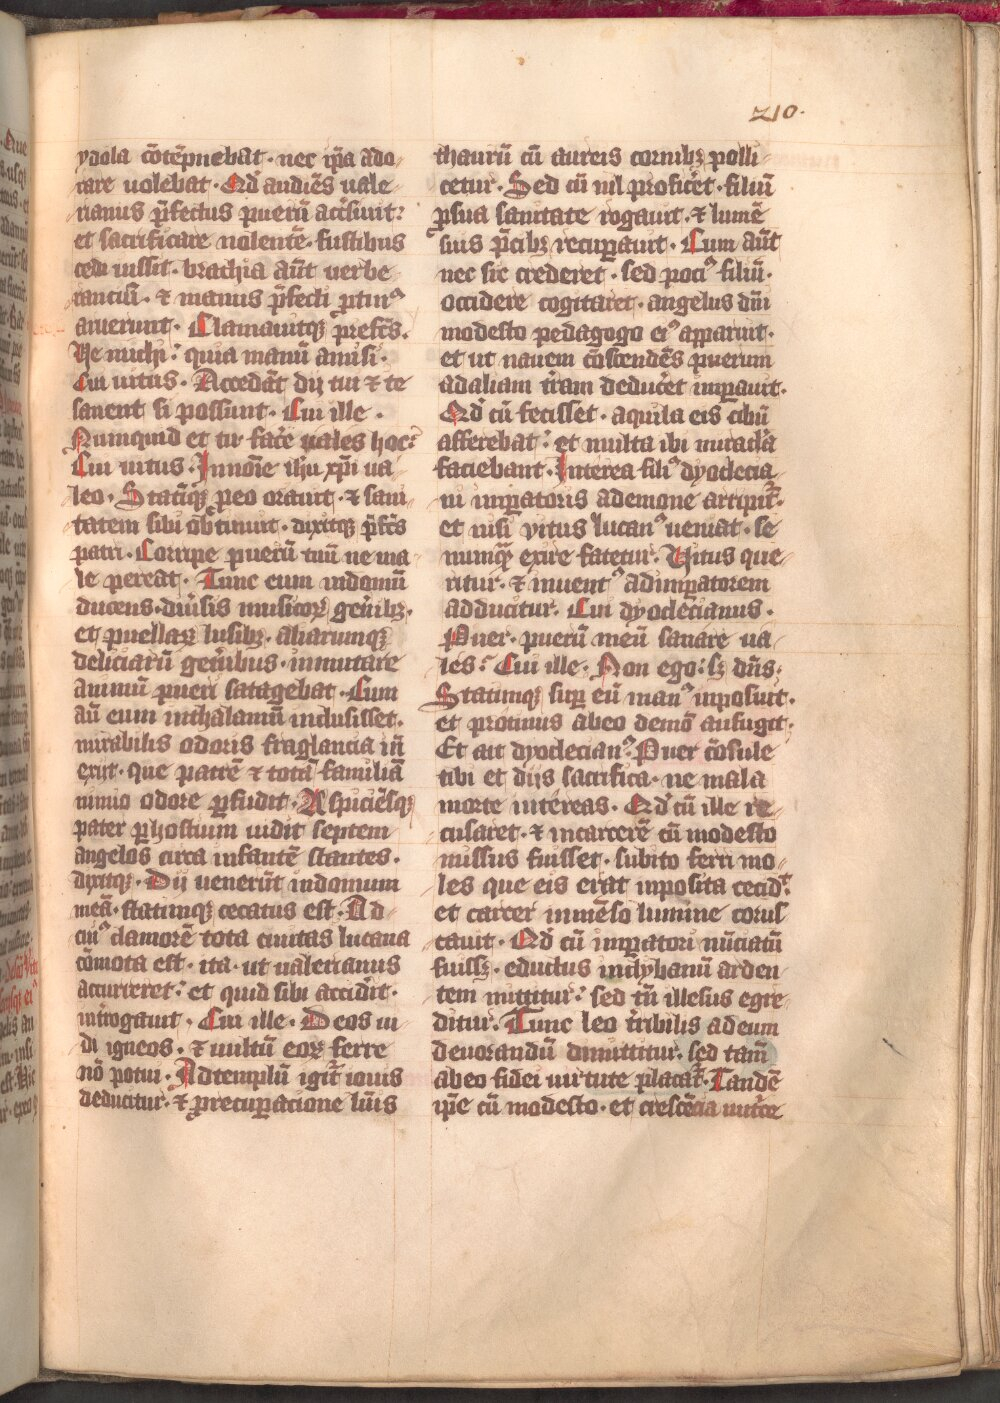 210.
ydola cōtēpnebat · nec ip̄a ado
rare uolebat · Qd̓ audiēs uale
rianus p̄fectus puerū accersiuit:
et sacrificare nolentē · fustibus
cedi iussit · brachia aūt uerbe
rantiū · ⁊ manus p̄fecti ꝓtinꝰ
aruerunt · Clamauitqꝫ prefcs̄.
Ve michi : quia manū amisi ·
Cui uitus · Accedāt dij tui ⁊ te
sanent si possunt · Cui ille ·
Numquid et tu fac̄e uales hoc:
Cui uitus · In noīe ihū xp̄i ua
leo · Statīqꝫ ꝓ eo orauit · ⁊ sani
tatem sibi obtinuit · dixitqꝫ p̄fcs̄
patri · Corripe puerū tuū ne ma
le pereat · Tunc eum in domū
ducens · diūsis musicoꝝ geīibꝫ ·
et puellaꝝ lusibꝫ · aliarumqꝫ
deliciarū geīibus · inmutare
animū pueri satagebat · Cum
aū eum in thalamū inclusisset ·
mirabilis odoris fraglancia in̄
exiit · que patrē ⁊ totā familiā
nimio odore ꝑfudit · Aspiciēsqꝫ
pater ꝑ hostium uidit septem
angelos circa infantē stantes ·
dixitqꝫ · Dij uenerūt in domum
meā · statimqꝫ cecatus est · Ad
cuiꝰ clamorē tota ciuitas lucana
cōmota est · ita · ut ualerianus
accurreret : et quid sibi accid̄it ·
int̄rogauit · Cui ille · Deos ui
di igneos · ⁊ uultū eoꝝ ferre
nō potui · Ad templū igit̄ iouis
deducitur · ⁊ ꝓ recuꝑacione lūis
thaurū cū aureis cornibꝫ polli
cetur · Sed cū nil profic̄et · filiū
ꝓ sua sanitate rogauit · ⁊ lumē
suis p̄cibꝫ recuꝑauit · Cum aūt
nec sic crederet · sed pociꝰ filiū ·
occidere cogitaret · angelus dn̄i
modesto pedagogo eiꝰ apparuit ·
et ut nauem cōscendēs puerum
ad aliam t̄ram deduc̄et imꝑauit ·
Qd̓ cū fecisset · aquila eis cibū
afferebat : et multa ibi miracl̄a
faciebant · Interea filiꝰ dyoclecia
ni imꝑatoris a demone arripit̄ ·
et nisi vitus lucanꝰ ueniat · se
numqꝫ exire fatetur · Vitus que
ritur · ⁊ inuentꝰ ad imꝑatorem
adducitur · Cui dyoclecianus ·
Puer · puerū meū sanare ua
les : Cui ille · Non ego : sꝫ dn̄s ·
Statimqꝫ suꝑ eū manꝰ inposuit ·
et protinus ab eo demō aufugit ·
Et ait dyoclecianꝰ · Puer cōsule
tibi et dijs sacrifica · ne mala
morte intereas · Qd̓ cū ille re
cusaret · ⁊ in carcerē cū modesto
missus fuisset · subito ferri mo
les que eis erat inposita cecid̄t ·
et carcer inmēso lumine corus
cauit · Qd̓ cū imꝑatori nūciatū
fuissꝫ · eductus in clybanū arden
tem mittitur : sed in̄ illesus egre
ditur · Tunc leo t̄ribilis ad eum
deuorandū dimittitur · sed tam̄
ab eo fidei uirtute placat̄ · Tandē
ip̄e cū modesto · et crescēcia nut̄ce